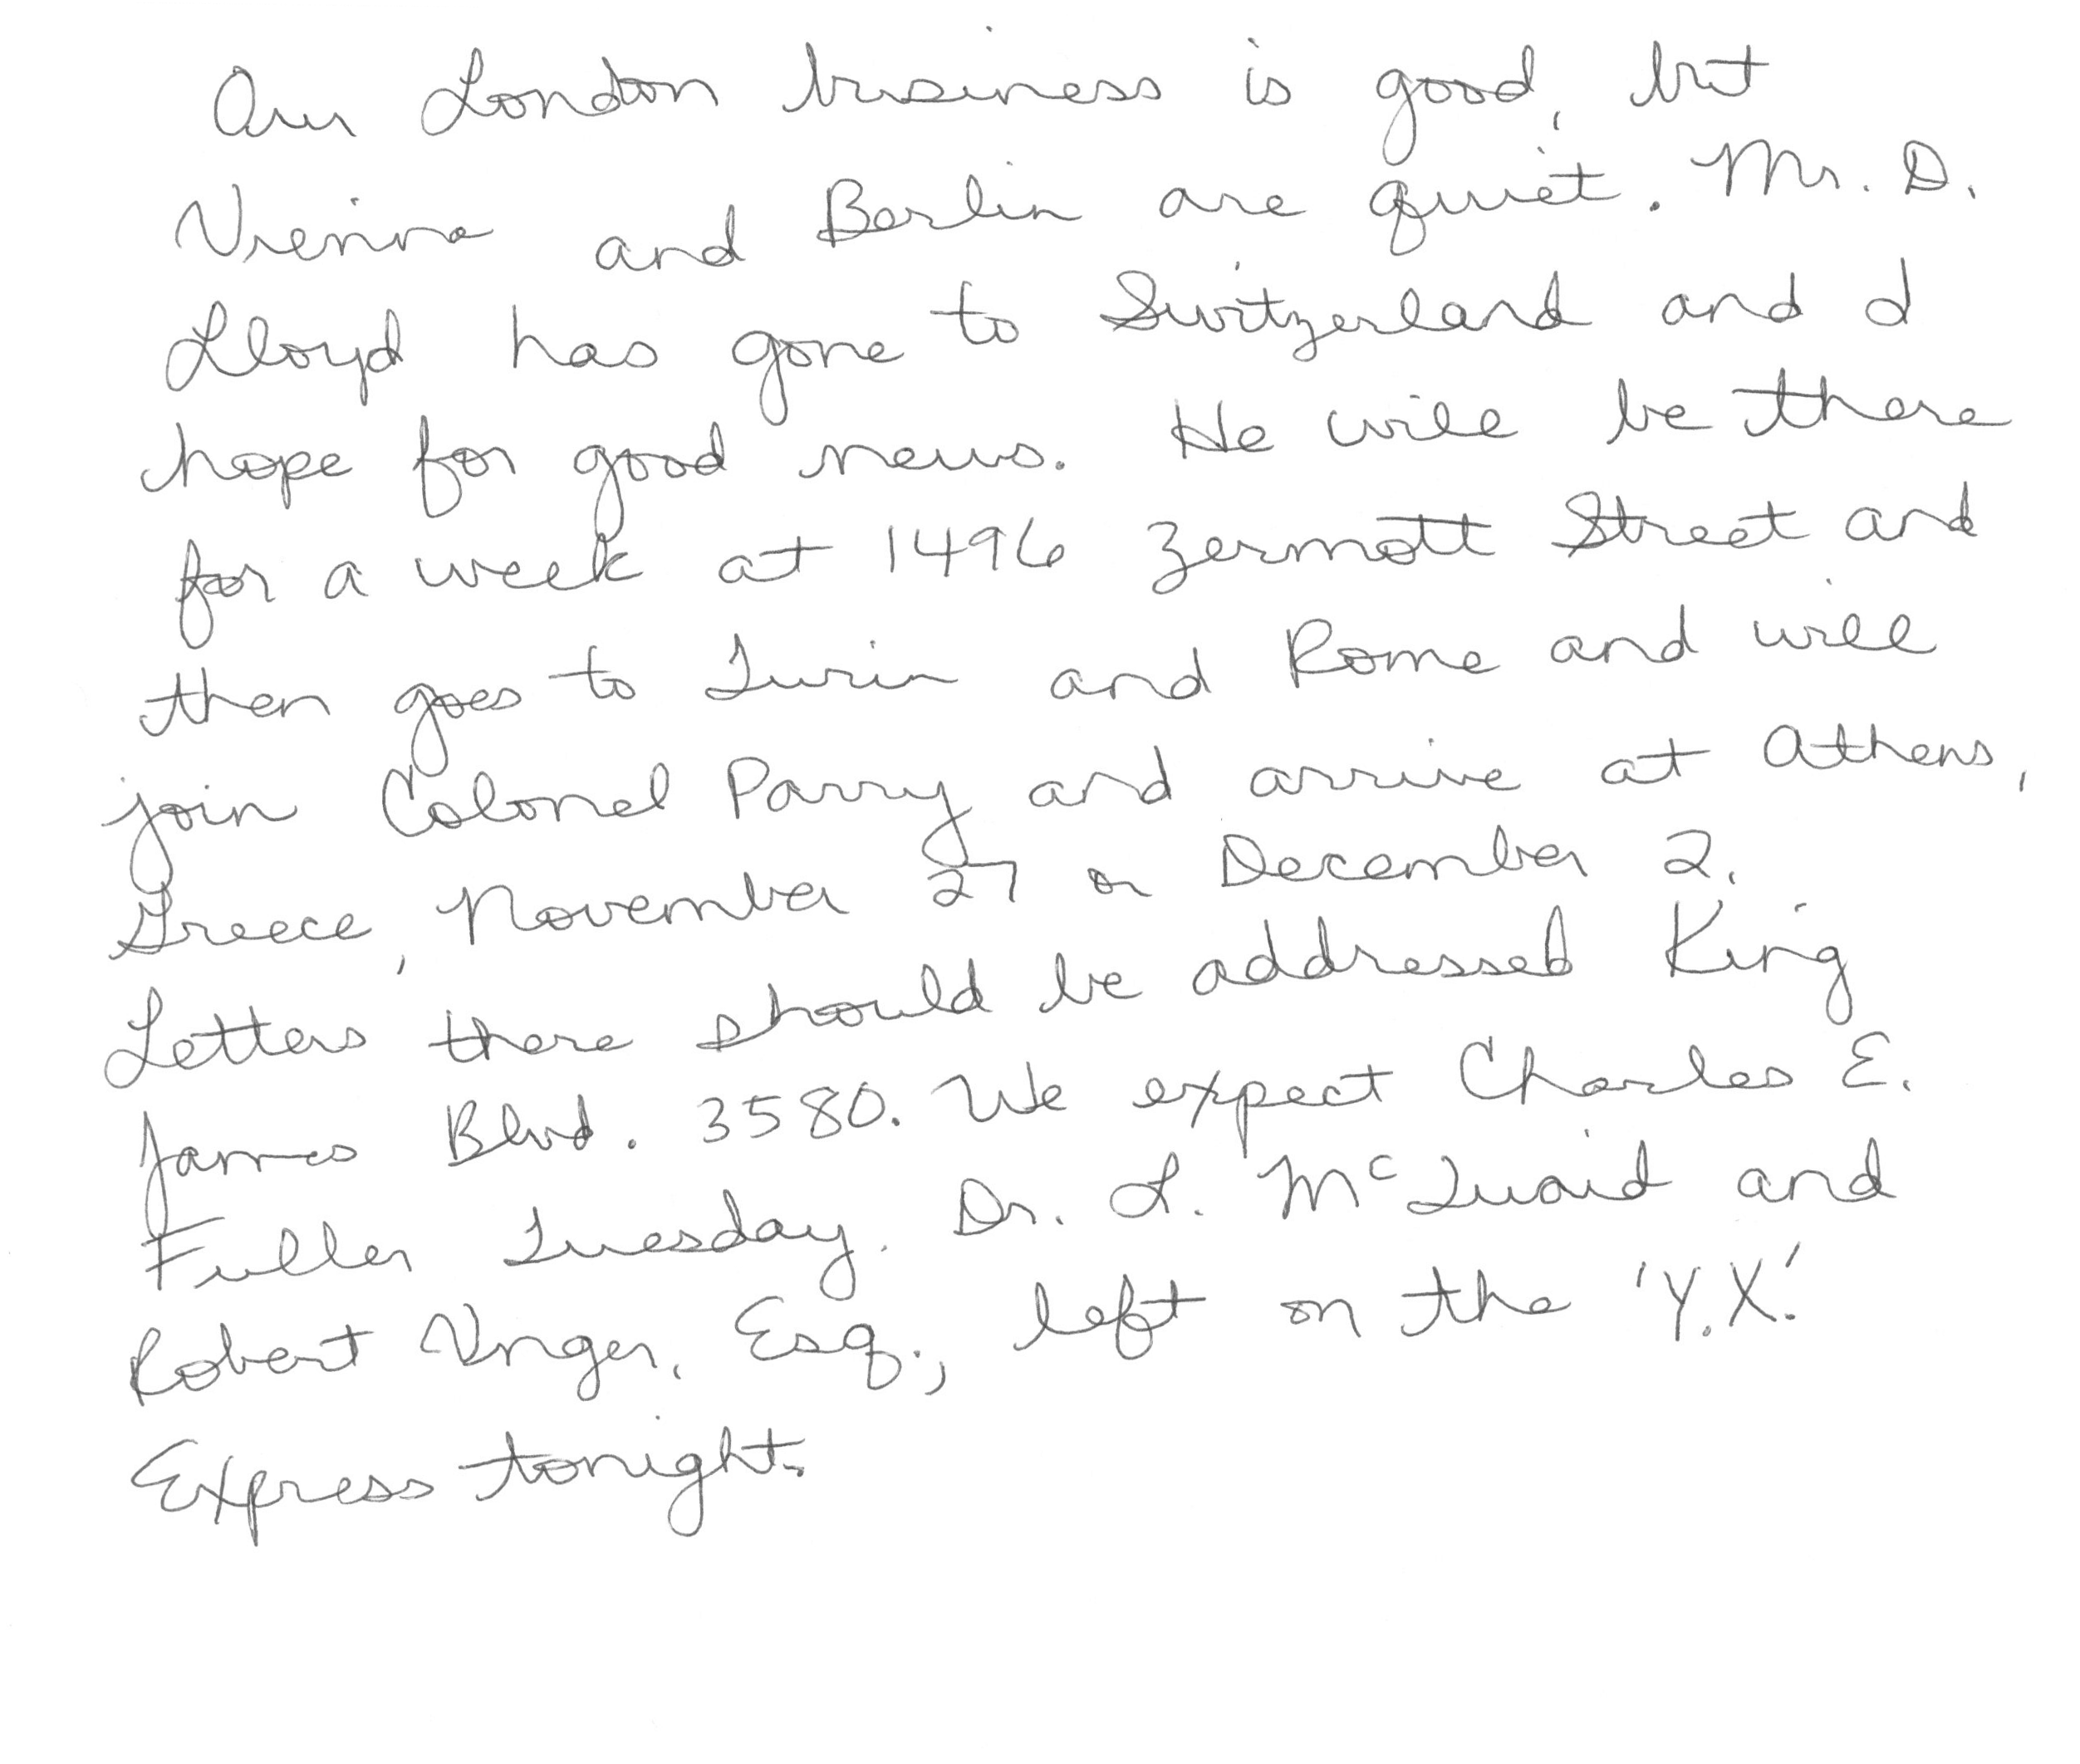 Our London business is good, but
Vienna and Berlin are quiet. Mr. D.
Lloyd has gone to Switzerland and I
hope for good news. He will be there
for a week at 1496 Zermott Street and
then goes to Turin and Rome and will
join Colonel Parry and arrive at Athens,
Greece, November 27 or December 2.
Letters there should be addressed King
James Blvd. 3580. We expect Charles E.
Fuller Tuesday. Dr. L. McQuaid and
Robert Unger, Esq., left on the 'Y.X.'
Express tonight.